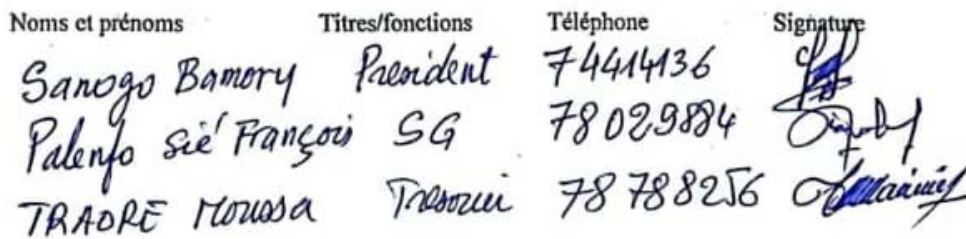 Noms et prénoms Titres/fonctions Téléphone Signature
Sanogo Bamory President 74414136
Palenfo Sié François SG 78029884
TRAORE Moussa Tresorier 78788256